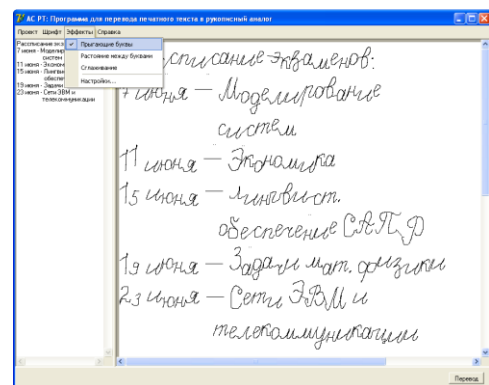 АС РТ: Программа для перевода печатного текста в рукописный аналог
Проект Шрифт Эффекты Справка
Прыгающие буквы
Растояние между буквами
Сглаживание
Настройки...
Расписание экз
7 июня - Моделир
систем
11 июня - Эконом
15 июня - Лингви
обеспеч
19 июня - Задачи
23 июня - Сети ЭВМ и
телекоммуникации
писание экзаменов:
7 июня — Моделирование
систем
11 июня — Экономика
15 июня — Лингвист.
обеспечение САПР
19 июня — Задачи мат. физики
23 июня — Сети ЭВМ и
телекоммуникации
Перевод